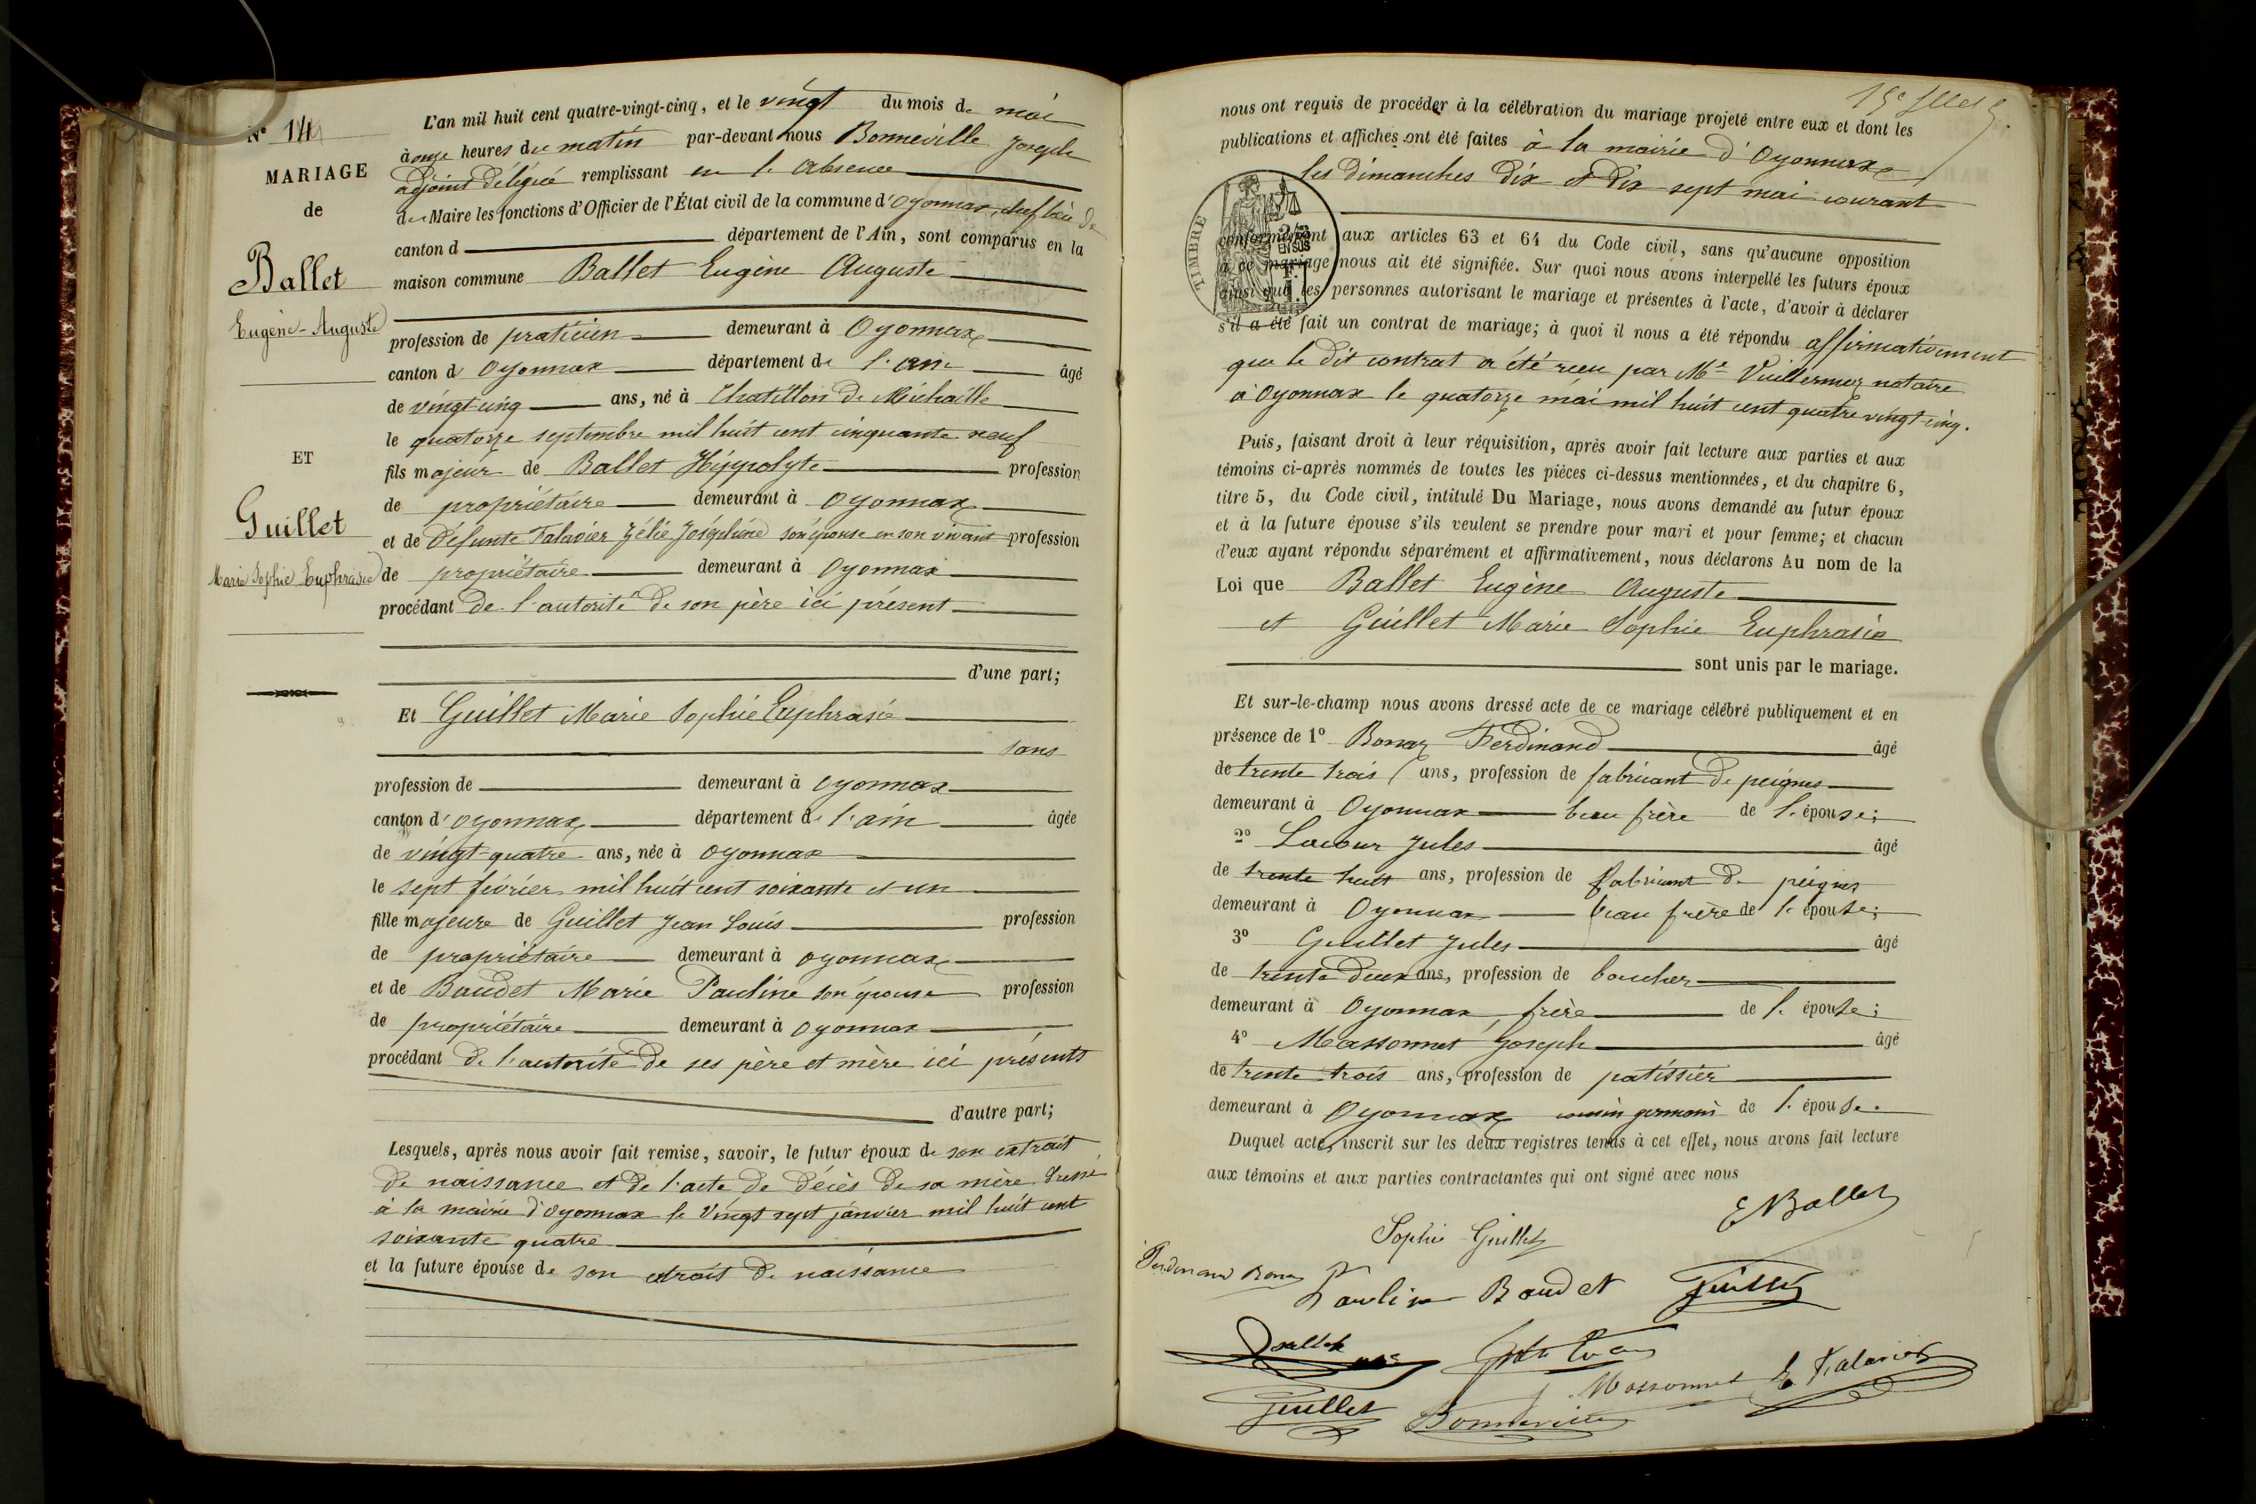 N° 14
MARIAGE
de
Ballet
Eugène-Auguste
ET
Guillet
Marie Sophie Euphrasie
L'an mil huit cent quatre-vingt-cinq, et le vingt du mois de mai
à onze heures du matin par-devant nous Bonneville Joseph
adjoint délégué remplissant en l'absence
du Maire les fonctions d'Officier de l'État civil de la commune d'Oyonnax, chef lieu de
canton d département de l'Ain, sont comparus en la
maison commune Ballet Eugène Auguste
profession de praticien demeurant à Oyonnax
canton d'Oyonnax département de l'ain âgé
de vingt-cinq ans, né à Chatillon de Michaille
le quatorze septembre mil huit cent cinquante neuf
fils majeur de Ballet Hippolyte profession
de propriétaire demeurant à Oyonnax
et de défunte Talavier Zélie Joséphine son épouse en son vivant profession
de propriétaire demeurant à Oyonnax
procédant de l'autorité de son père ici présent
d'une part;
Et Guillet Marie Sophie Euphrasie
sans
profession de demeurant à Oyonnax
canton d'Oyonnax département de l'ain âgée
de vingt-quatre ans, née à Oyonnax
le sept février mil huit cent soixante et un
fille majeure de Guillet Jean Louis profession
de propriétaire demeurant à Oyonnax
et de Baudet Marie Pauline son épouse profession
de propriétaire demeurant à Oyonnax
procédant de l'autorité de ses père et mère ici présents
d'autre part;
Lesquels, après nous avoir fait remise, savoir, le futur époux de son extrait
de naissance et de l'acte de décès de sa mère dressé
à la mairie d'Oyonnax le vingt sept janvier mil huit cent
soixante quatre
et la future épouse de son extrait de naissance
nous ont requis de procéder à la célébration du mariage projeté entre eux et dont les
publications et affiches ont été faites à la mairie d'Oyonnax
les dimanches dix et dix-sept mai courant
TIMBRE
conformément aux articles 63 et 64 du Code civil, sans qu'aucune opposition
à ce mariage nous ait été signifiée. Sur quoi nous avons interpellé les futurs époux
ainsi que les personnes autorisant le mariage et présentes à l'acte, d'avoir à déclarer
s'il a été fait un contrat de mariage; à quoi il nous a été répondu affirmativement
que le dit contrat a été reçu par Me Vuillermoz notaire
à Oyonnax le quatorze mai mil huit cent quatre vingt-cinq.
Puis, faisant droit à leur réquisition, après avoir fait lecture aux parties et aux
témoins ci-après nommés de toutes les pièces ci-dessus mentionnées, et du chapitre 6,
titre 5, du Code civil, intitulé Du Mariage, nous avons demandé au futur époux
et à la future épouse s'ils veulent se prendre pour mari et pour femme; et chacun
d'eux ayant répondu séparément et affirmativement, nous déclarons Au nom de la
Loi que Ballet Eugène Auguste
et Guillet Marie Sophie Euphrasie
sont unis par le mariage.
Et sur-le-champ nous avons dressé acte de ce mariage célébré publiquement et en
présence de 1° Bonaz Ferdinand âgé
de trente trois ans, profession de fabricant de peignes
demeurant à Oyonnax beau frère de l'épouse;
2° Lacour Jules âgé
de trente huit ans, profession de fabricant de peignes
demeurant à Oyonnax beau frère de l'épouse;
3° Guillet Jules âgé
de trente deux ans, profession de boucher
demeurant à Oyonnax frère de l'épouse;
4° Massonnet Joseph âgé
de trente trois ans, profession de patissier
demeurant à Oyonnax cousin germain de l'épouse.
Duquel acte, inscrit sur les deux registres tenus à cet effet, nous avons fait lecture
aux témoins et aux parties contractantes qui ont signé avec nous
E Ballet
Sophie Guillet
Ferdinand Bonaz Pauline Baudet Guillet
Ballet
Massonnet E Talavier
Guillet Bonneville